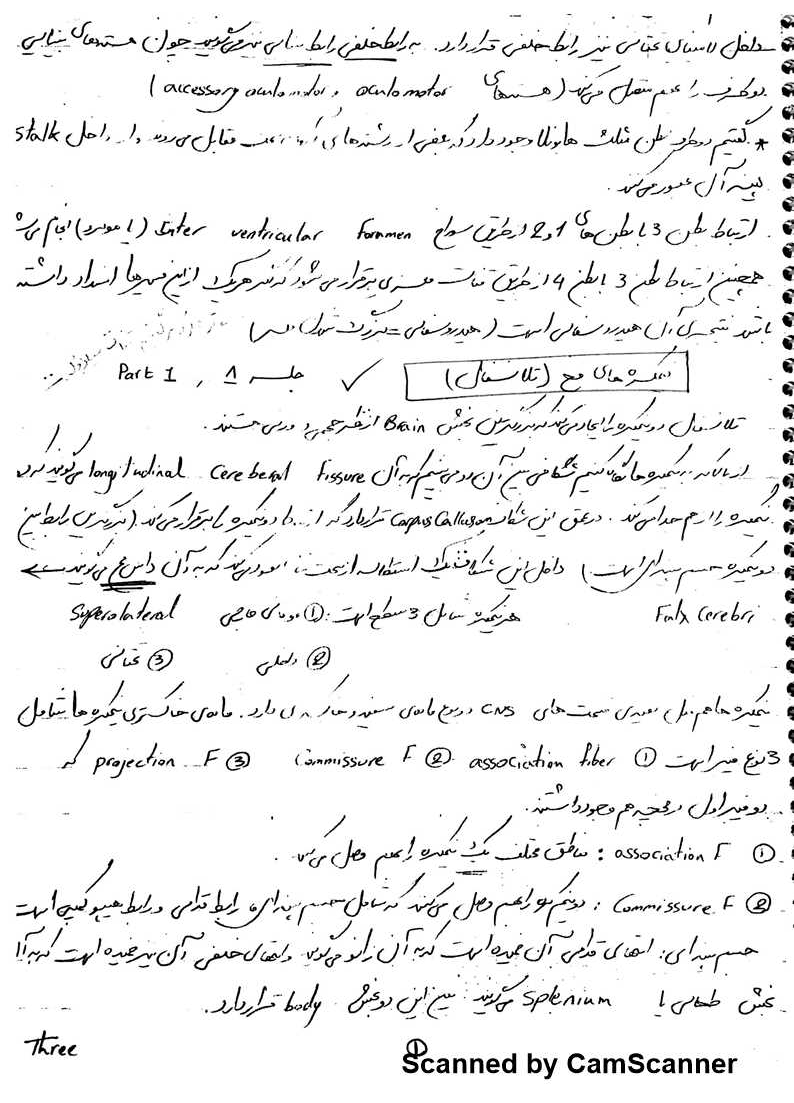 داخل لامینای تحتانی نیز رابط خلفی قرار دارد. به رابط خلفی رابط بینایی نیز می‌گویند چون هسته‌های بینایی
دو طرف را بهم متصل می‌کند (هسته‌های oculomotor و accessory oculomotor)
* گفتیم دو طرف بطن مثلث هابنولا وجود دارد که بعضی از رشته‌های آن به سمت مقابل می‌روند و از داخل stalk
پینه آل عبور می‌کنند.
ارتباط بطن 3 با بطن های 1 و 2 از طریق سوراخ Inter ventricular foramen (یا مونرو) انجام می‌شود
همچنین ارتباط بطن 3 با بطن 4 از طریق قنات مغزی برقرار می‌شود که اگر هر یک از این مسیرها انسداد داشته
باشد نتیجه‌ی آن هیدروسفالی است (هیدروسفالی = بزرگ شدن سر)
نیمکره های مخ (تلانسفال) ✓ جلسه ۸ , Part 1
تلانسفال دو نیمکره را ایجاد می‌کند که بزرگترین بخش Brain از نظر حجم و وزن هستند.
از بالا که به نیمکره ها نگاه کنیم شکافی بین آن دو می‌بینیم که به آن longitudinal Cerebral fissure می‌گویند که دو
نیمکره را از هم جدا می‌کند. در عمق این شکاف Corpus Callosum قرار دارد که ارتباط دو نیمکره را برقرار می‌کند. (بزرگترین رابط بین
دو نیمکره جسم پینه‌ای است) داخل این شکاف یک استطاله از سخت شامه نفوذ می‌کند که به آن داس مخ می‌گویند ←
Falx Cerebri هر نیمکره شامل 3 سطح است: ① فوقانی خارجی Superolateral
② داخلی ③ تحتانی
نیمکره ها هم مثل بقیه‌ی قسمت های CNS دو نوع ماده‌ی سفید و خاکستری دارد. ماده‌ی خاکستری نیمکره ها شامل
3 نوع فیبر است ① association fiber ② Commissure F ③ projection F که
دو فیبر اول در مخچه هم وجود داشتند.
① association F : مناطق مختلف یک نیمکره را بهم وصل می‌کند.
② Commissure F : دو نیمکره را بهم وصل می‌کنند که شامل جسم پینه ای، رابط قدامی و رابط هیپوکمپی است
جسم پینه ای: انتهای قدامی آن خمیده است که به آن زانو می‌گویند و انتهای خلفی آن نیز خمیده است که به آن
بخش طحالی یا Splenium می‌گویند بین این دو بخش body قرار دارد.
Three
①
Scanned by CamScanner